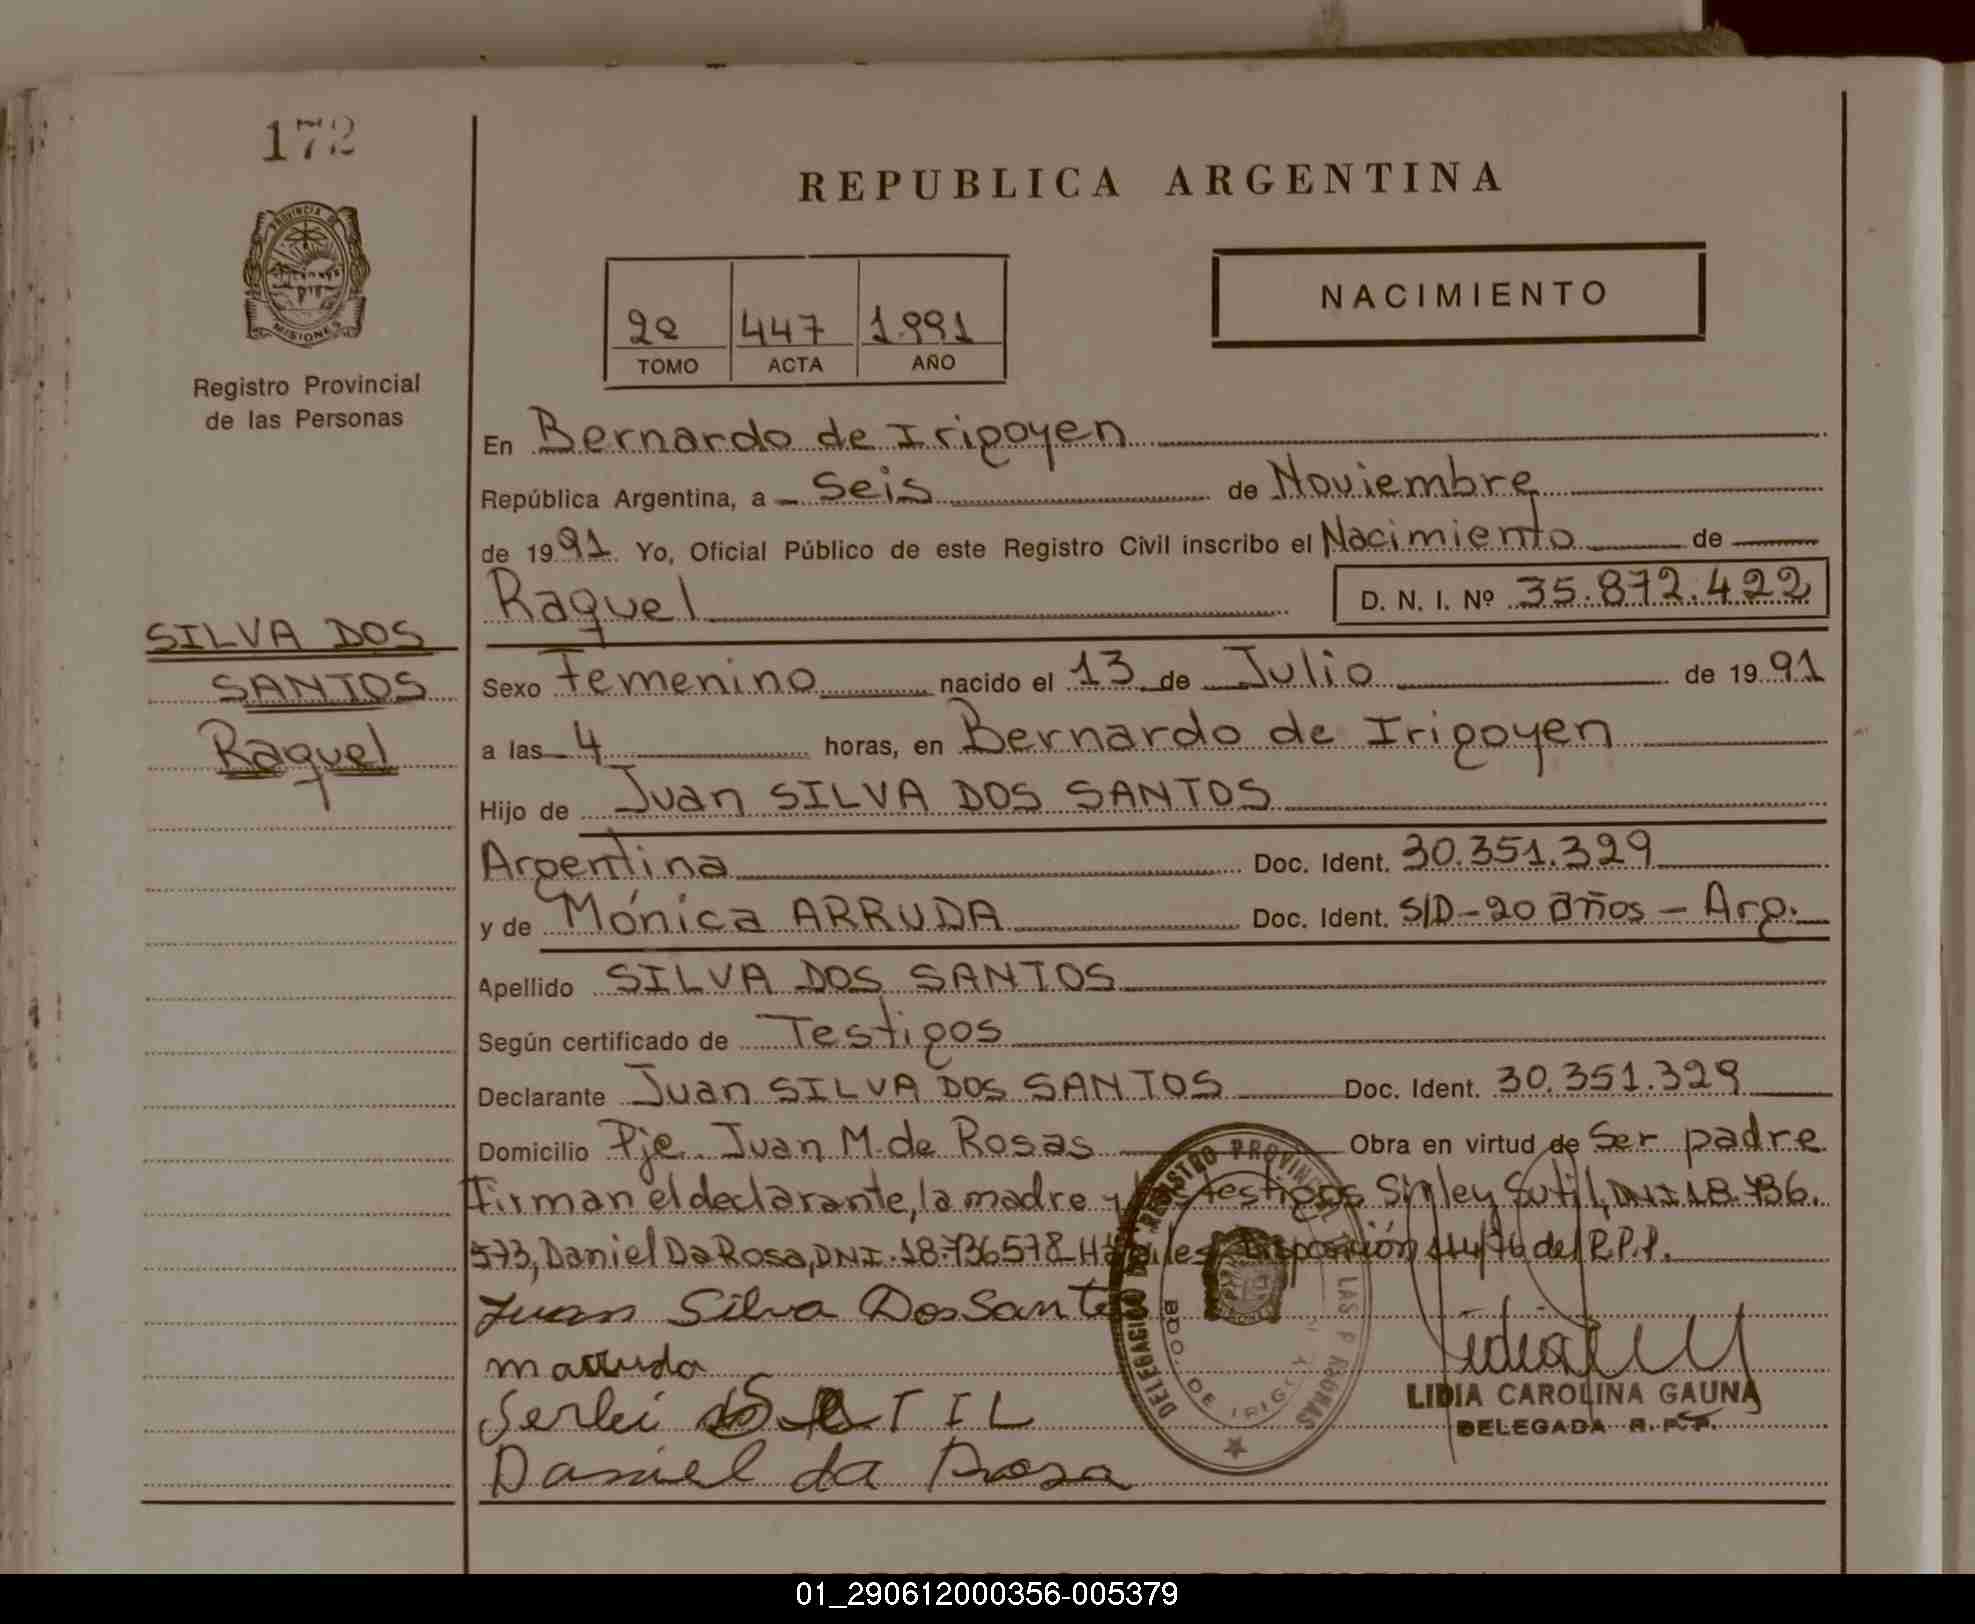 172
REPUBLICA ARGENTINA
PROVINCIA DE
MISIONES
Registro Provincial
de las Personas
2º 447 1.991
TOMO ACTA AÑO
NACIMIENTO
En Bernardo de Irigoyen
República Argentina, a Seis de Noviembre
de 1991 Yo, Oficial Público de este Registro Civil inscribo el Nacimiento de
Raquel D. N. I. Nº 35.872.422
SILVA DOS
SANTOS
Raquel
Sexo Femenino nacido el 13 de Julio de 1991
a las 4 horas, en Bernardo de Irigoyen
Hijo de Juan SILVA DOS SANTOS
Argentina Doc. Ident. 30.351.329
y de Mónica ARRUDA Doc. Ident. S/D-20 años - Arg.
Apellido SILVA DOS SANTOS
Según certificado de Testigos
Declarante Juan SILVA DOS SANTOS Doc. Ident. 30.351.329
Domicilio Pje. Juan M. de Rosas Obra en virtud de Ser padre
Firman el declarante, la madre y testigos Sirley Sutil, DNI 18.736.
573, Daniel Da Rosa, DNI. 18.736578 Hábiles Disposición 114/74 del R.P.P.
Juan Silva Dos Santos
marruda
Serlei SUTIL
Daniel da Rosa
LIDIA CAROLINA GAUNA
DELEGADA R. P. P.
BDO. DE IRIGOYEN
01_290612000356-005379